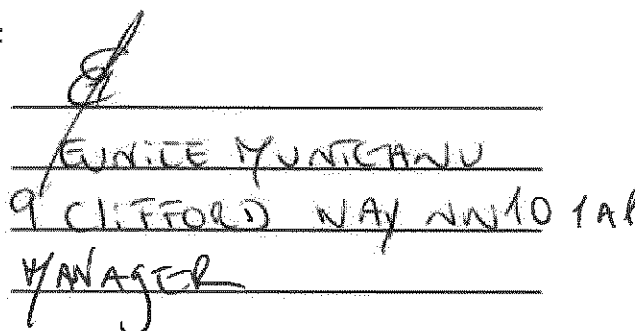 :
EUNICE MUNTEANU
9 CLIFFORD WAY NN10 1AR
MANAGER